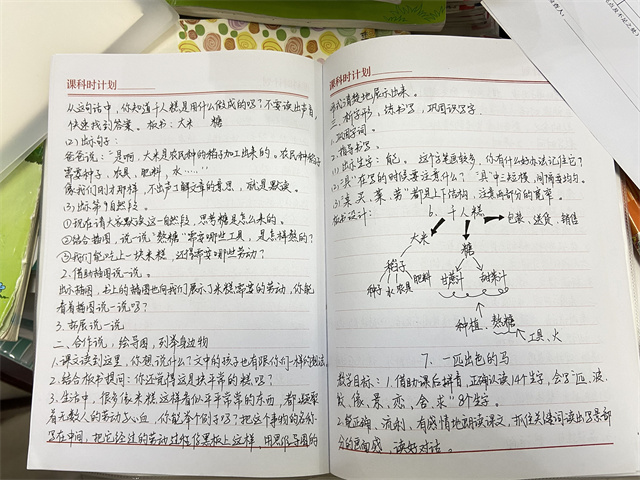 课科时计划
从这句话中，你知道千人糕是用什么做成的吗？不要读出声音，
快速找到答案。板书：大米 糖
(2)出示句子：
爸爸说："是啊，大米是农民种的稻子加工出来的。农民种稻子
需要种子，农具，肥料，水……"
像我们刚才那样，不出声了解文章的意思，就是默读。
(3)出示第9自然段。
①现在请大家默读这一自然段，思考糖是怎么来的。
②结合插图，说一说"熬糖"需要哪些工具，是怎样熬的？
③我们能吃上一块米糕，还得需要哪些劳动？
2.借助插图说一说。
出示插图，书上的插图也向我们展示了米糕需要的劳动，你能
看着插图说一说吗？
3.拓展说一说
二、合作说，绘导图，列举身边物
1.课文读到这里，你想说什么？文中的孩子也有跟你们一样的想法。
2.结合板书提问：你还觉得这是块平常的糕吗？
3.生活中，很多像米糕这样看似平平常常的东西，都凝聚
着无数人的劳动与心血，你能举个例子吗？把这个事物的名称
写在中间，把它经过的劳动过程像黑板上这样，用思维导图的
形式清楚地展示出来。
三、析字形，练书写，巩固识写字
1.巩固字词。
2.指导书写。
(1)出示生字：能。这个字笔画较多，你有什么好办法记住它？
(2)"具"在写的时候要注意什么？"具"中三短横，间隔要均匀。
(3)"桌、买、菜、劳"都是上下结构，注意两部分的宽窄。
板书设计： 6、千人糕
大米 糖 包装、送货、销售
稻子
种子 水 农具 肥料 甘蔗汁 甜菜汁
种植、熬糖
工具、火
7、一匹出色的马
教学目标：1.借助课后拼音，正确认读14个生字，会写"匹、波、
纹、像、景、恋、舍、求"8个生字。
2.能正确、流利、有感情地朗读课文，抓住关键词读出写景部
分的画面感，读好对话。